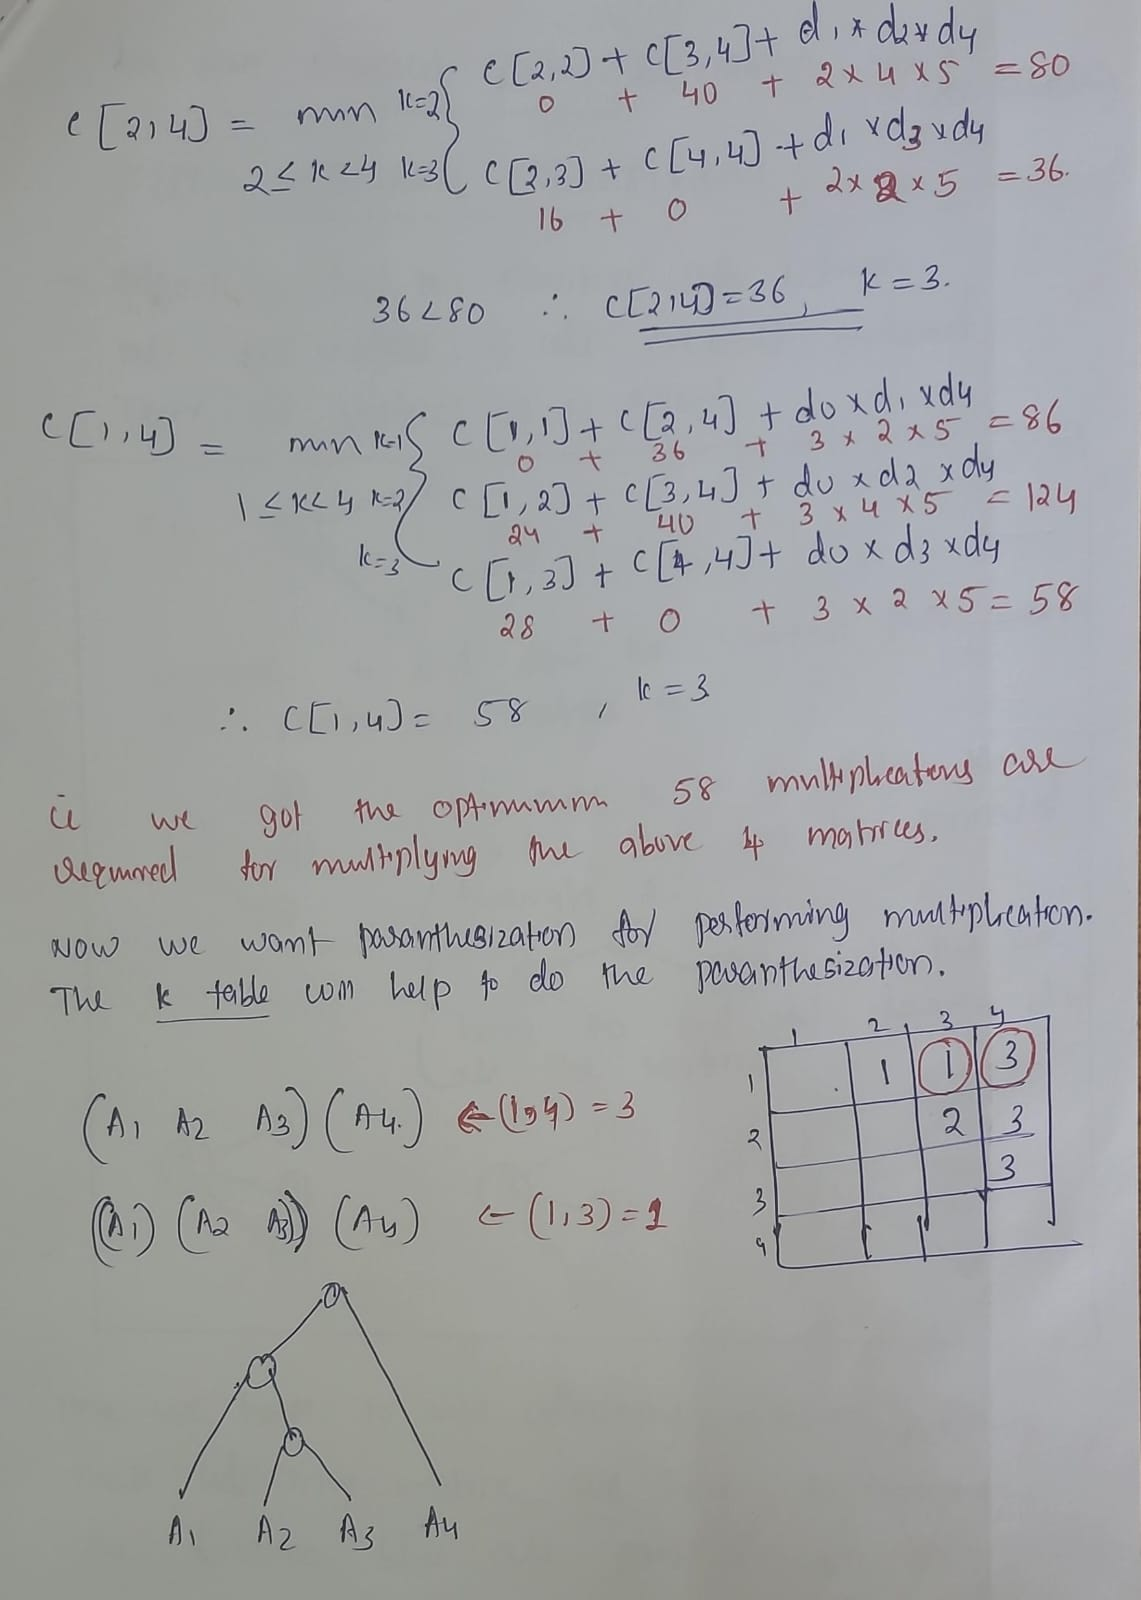 C[2,4] = min k=2 { C[2,2] + C[3,4] + d1 * d2 * d4
0 + 40 + 2 x 4 x 5 = 80
2 ≤ k < 4 k=3 { C[2,3] + C[4,4] + d1 x d3 x d4
16 + 0 + 2 x 2 x 5 = 36.
36 < 80 ∴ C[2,4] = 36, k = 3.
C[1,4] = min k=1 { C[1,1] + C[2,4] + d0 x d1 x d4
0 + 36 + 3 x 2 x 5 = 86
1 ≤ k < 4 k=2 C[1,2] + C[3,4] + d0 x d2 x d4
24 + 40 + 3 x 4 x 5 = 124
k=3 C[1,3] + C[4,4] + d0 x d3 x d4
28 + 0 + 3 x 2 x 5 = 58
∴ C[1,4] = 58 , k = 3
ie we got the optimumm 58 multiplications are
required for multiplying the above 4 matrices.
Now we want paranthesization for performing multiplication.
The k table will help to do the paranthesization.
1 2 3 4
1 1 1 3
2 2 3
3 3
4
(A1 A2 A3) (A4.) ← (1,4) = 3
((A1) (A2 A3)) (A4) ← (1,3) = 1
A1 A2 A3 A4